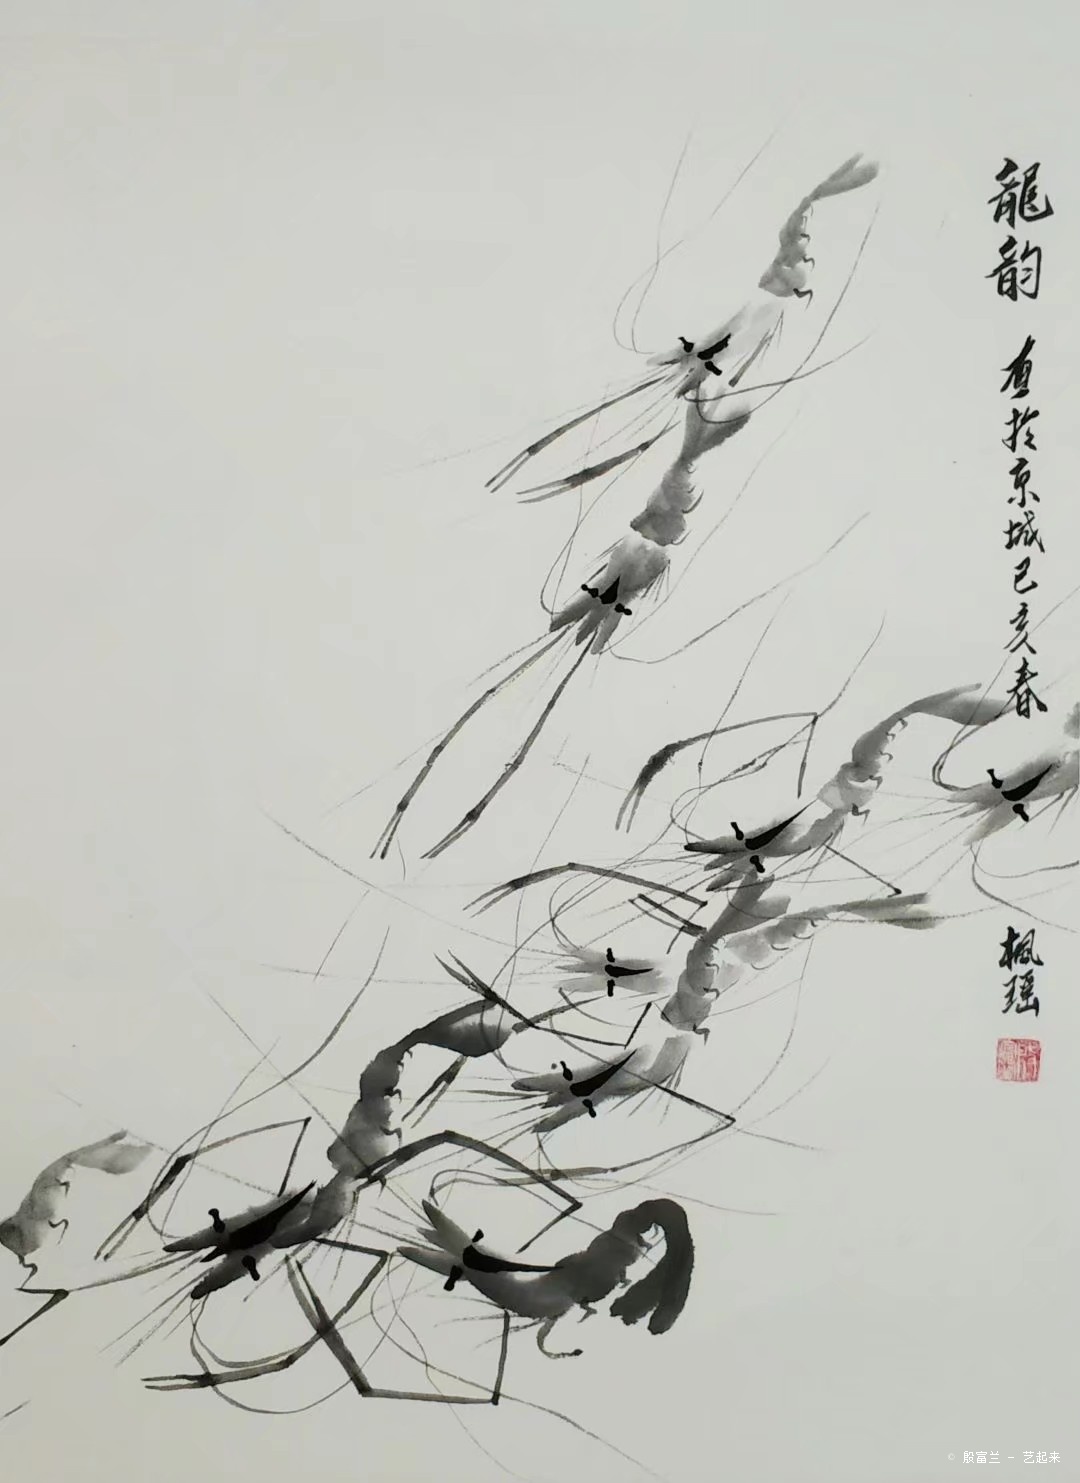 龍韵
画於京城己亥春
楓瑶
© 殷富兰 – 艺起来